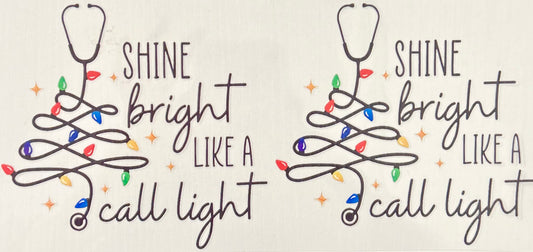 SHINE
bright
LIKE A
call light
SHINE
bright
LIKE A
call light